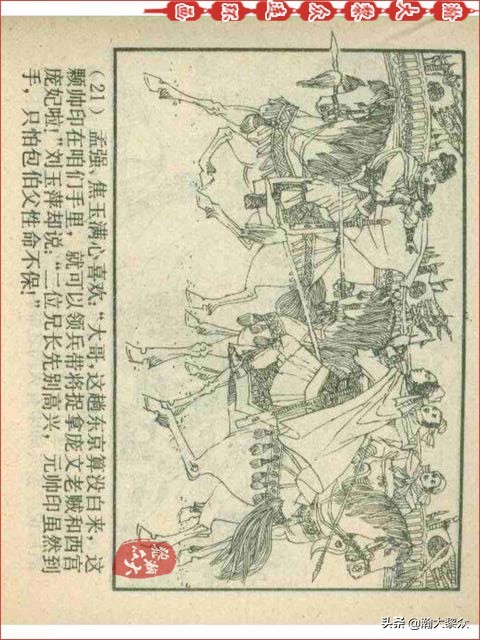 瀚大黎众连环画
(21) 孟强、焦玉满心喜欢:“大哥,这趟东京算没白来,这
颗帅印在咱们手里,就可以领兵带将捉拿庞文老贼和西宫
庞妃啦!”刘玉萍却说:“二位兄长先别高兴,元帅印虽然到
手,只怕包伯父性命不保!”
头条 @瀚大黎众